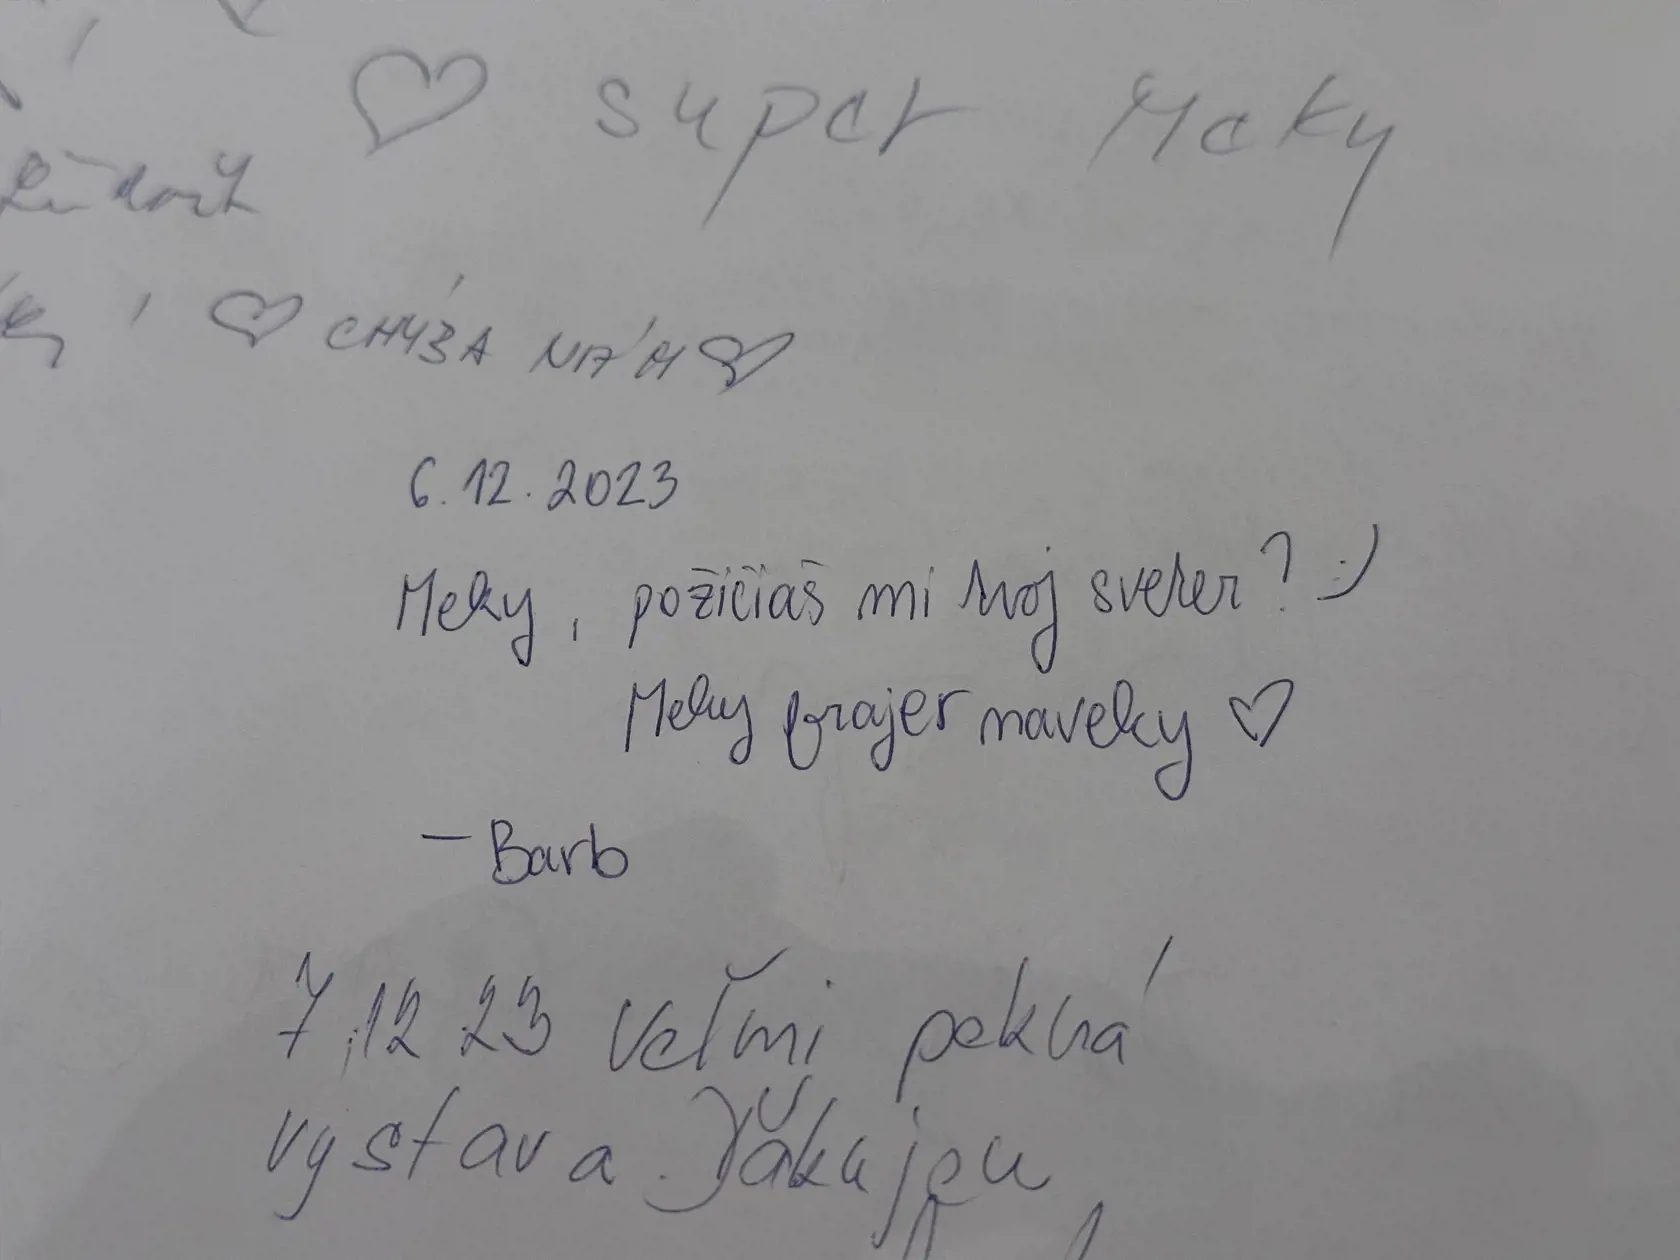 ♡ super Meky
♡ CHÝBA NÁM ♡
6.12.2023
Meky, požičiaš mi tvoj sveter? :)
Meky frajer naveky ♡
– Barb
7.12 23 Veľmi pekná
výstava. Ďakujeu